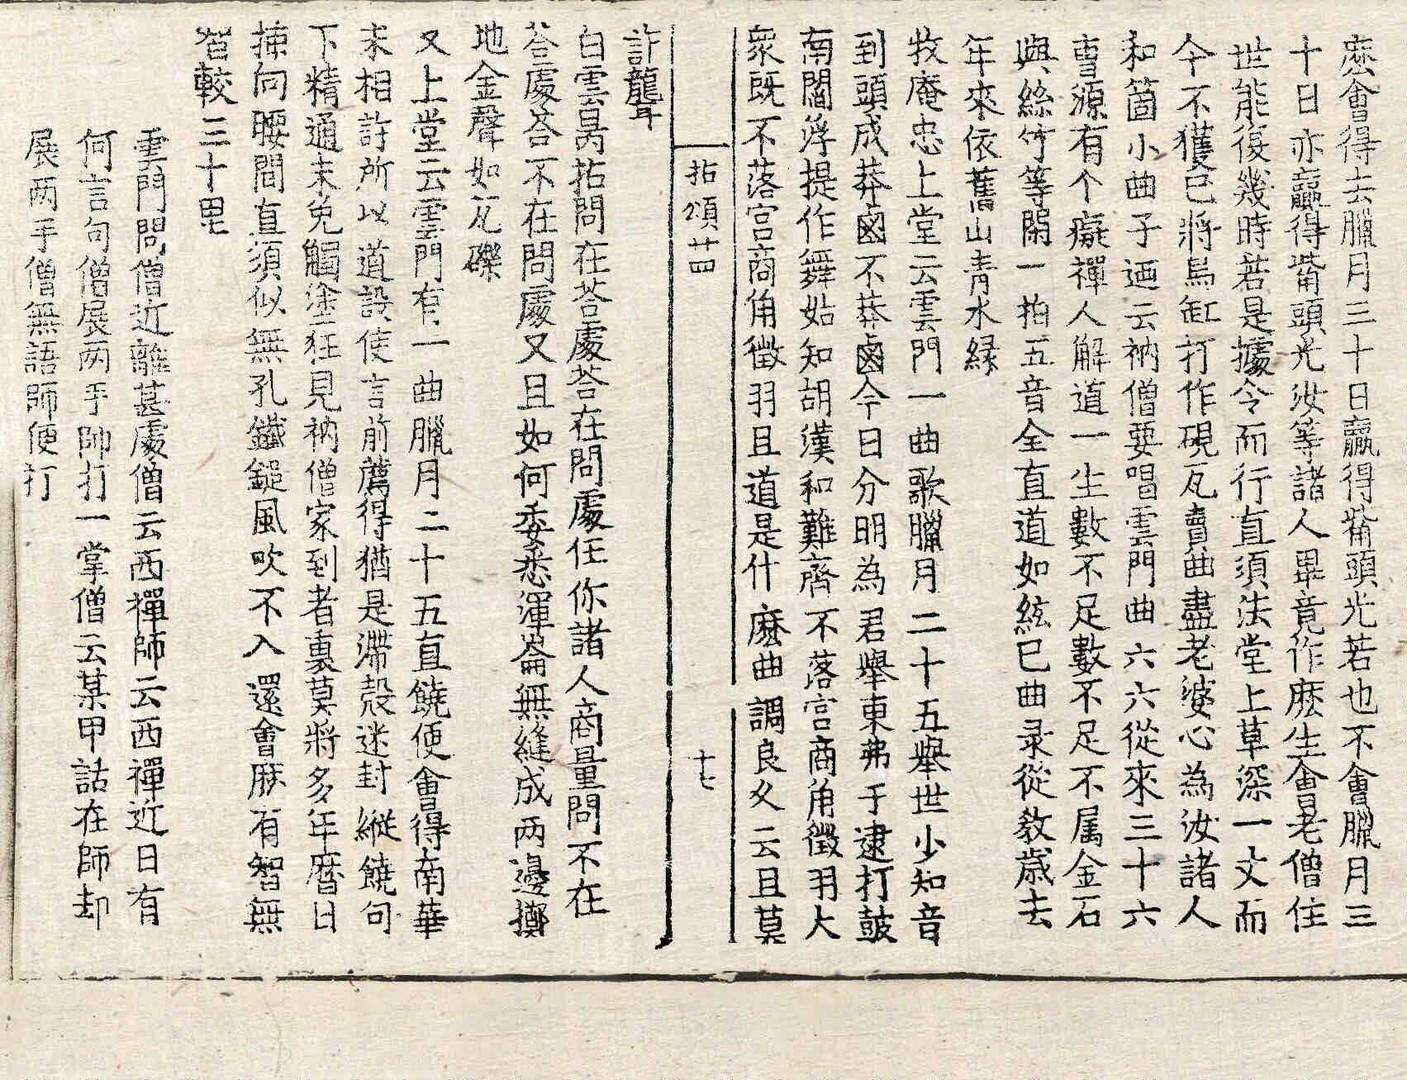 麽會得去臘月三十日贏得觜頭光若也不會臘月三
十日亦贏得觜頭光汝等諸人畢竟作麽生會老僧住
世能復幾時若是據令而行直須法堂上草深一丈而
今不獲已將烏缸打作硯瓦賣曲盡老婆心為汝諸人
和箇小曲子迺云衲僧要唱雲門曲六六從來三十六
曹源有个癡禪人解道一生數不足數不足不属金石
與絲竹等閑一拍五音全直道如絃已曲录從教歲去
年來依舊山青水緑
牧庵忠上堂云雲門一曲歌臘月二十五舉世少知音
到頭成莽鹵不莽鹵今日分明為君舉東弗于逮打鼓
南閻浮提作舞姑知胡漢和難齊不落宫商角徵羽大
衆既不落宫商角徵羽且道是什麽曲調良久云且莫
拈頌廿四
十七
詐聾
白雲昺拈問在荅處荅在問處任你諸人商量問不在
荅處荅不在問處又且如何委悉渾崙無縫成两邊擲
地金聲如瓦礫
又上堂云雲門有一曲臘月二十五直饒便會得南華
未相許所以道設使言前薦得猶是滯殼迷封縱饒句
下精通未免觸塗狂見衲僧家到者裏莫將多年曆日
揀向腰間直須似無孔鐵鎚風吹不入還會麽有智無
智較三十里
雲門問僧近離甚處僧云西禪師云西禪近日有
何言句僧展两手師打一掌僧云某甲話在師却
展两手僧無語師便打